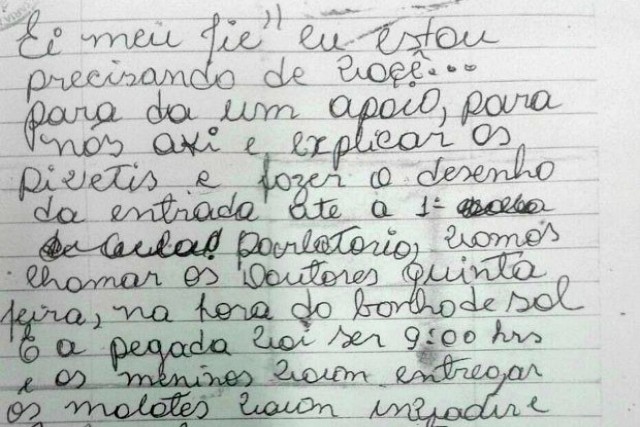 Ei meu fie" eu estou
precizando de você...
para da um apoio, para
nós axi e explicar os
pivetis e fozer o desenho
da entriada ate a 1=
parlatorio, vamos
chamar os Doutores quinta
feira, na hora do bonho de sol
E a pegada vai ser 9:00 hrs
e os meninos vaum entregar
os malotes vaum invadire